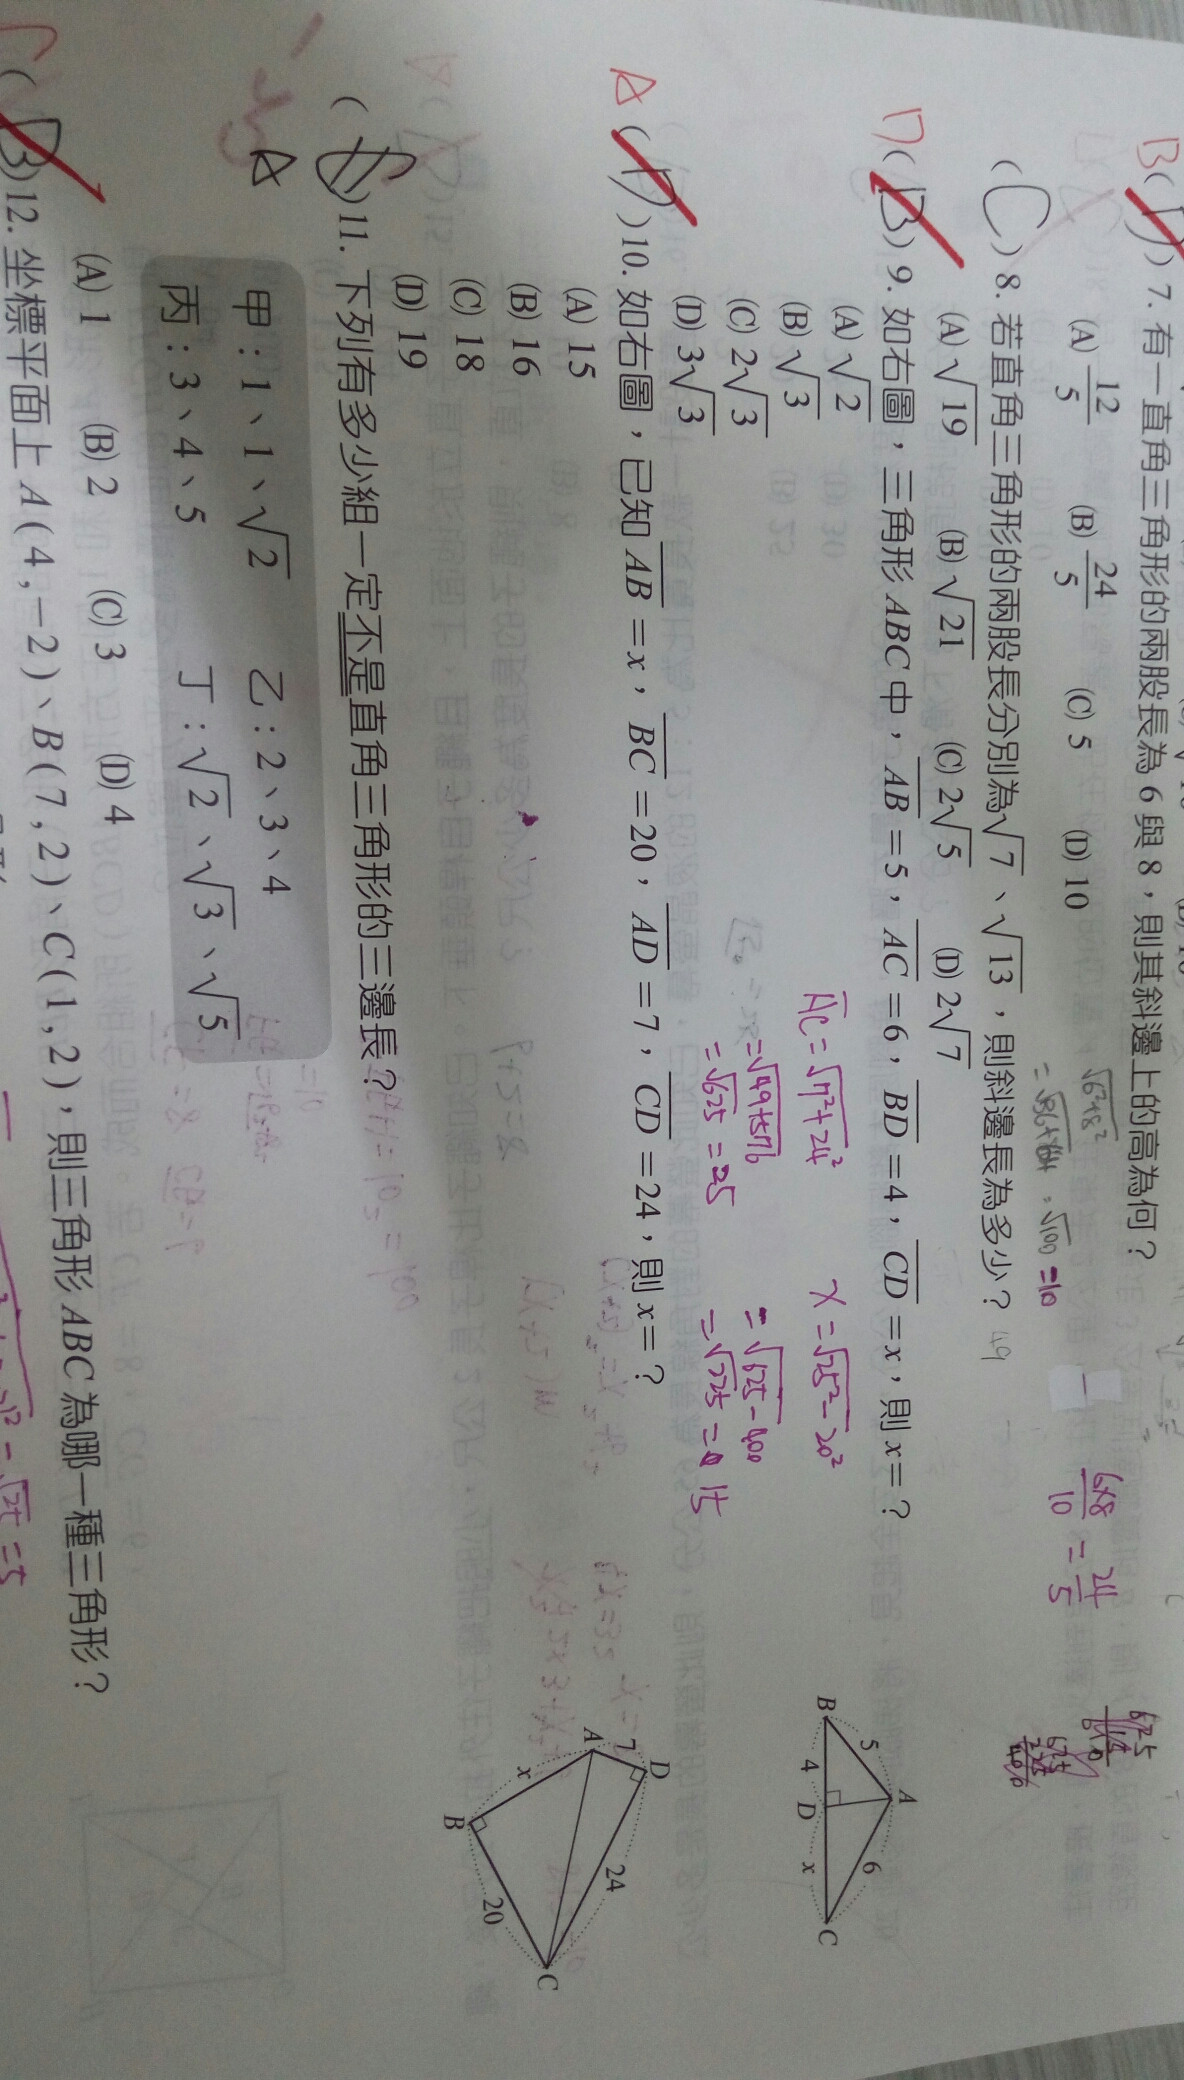 B(D) 7. 有一直角三角形的兩股長為6與8，則其斜邊上的高為何？
(A) 12/5 (B) 24/5 (C) 5 (D) 10
√6²+8²
=√36+64 = √100 = 10
6×8/10 = 24/5
(C) 8. 若直角三角形的兩股長分別為√7、√13，則斜邊長為多少？
49
(A) √19 (B) √21 (C) 2√5 (D) 2√7
D(B) 9. 如右圖，三角形ABC中，AB=5，AC=6，BD=4，CD=x，則x=？
(A) √2
(B) √3
(C) 2√3
(D) 3√3
A
5
6
B
4
D
x
C
A(D) 10. 如右圖，已知AB=x，BC=20，AD=7，CD=24，則x=？
(A) 15
(B) 16
(C) 18
(D) 19
AC=√7²+24²
=√49+576
=√625=25
x=√25²-20²
=√625-400
=√225=15
D
7
A
24
x
B
20
C
( ) 11. 下列有多少組一定不是直角三角形的三邊長？
A
甲：1、1、√2 乙：2、3、4
丙：3、4、5 丁：√2、√3、√5
(A) 1 (B) 2 (C) 3 (D) 4
(B) 12. 坐標平面上A(4,-2)、B(7,2)、C(1,2)，則三角形ABC為哪一種三角形？
=√25=5